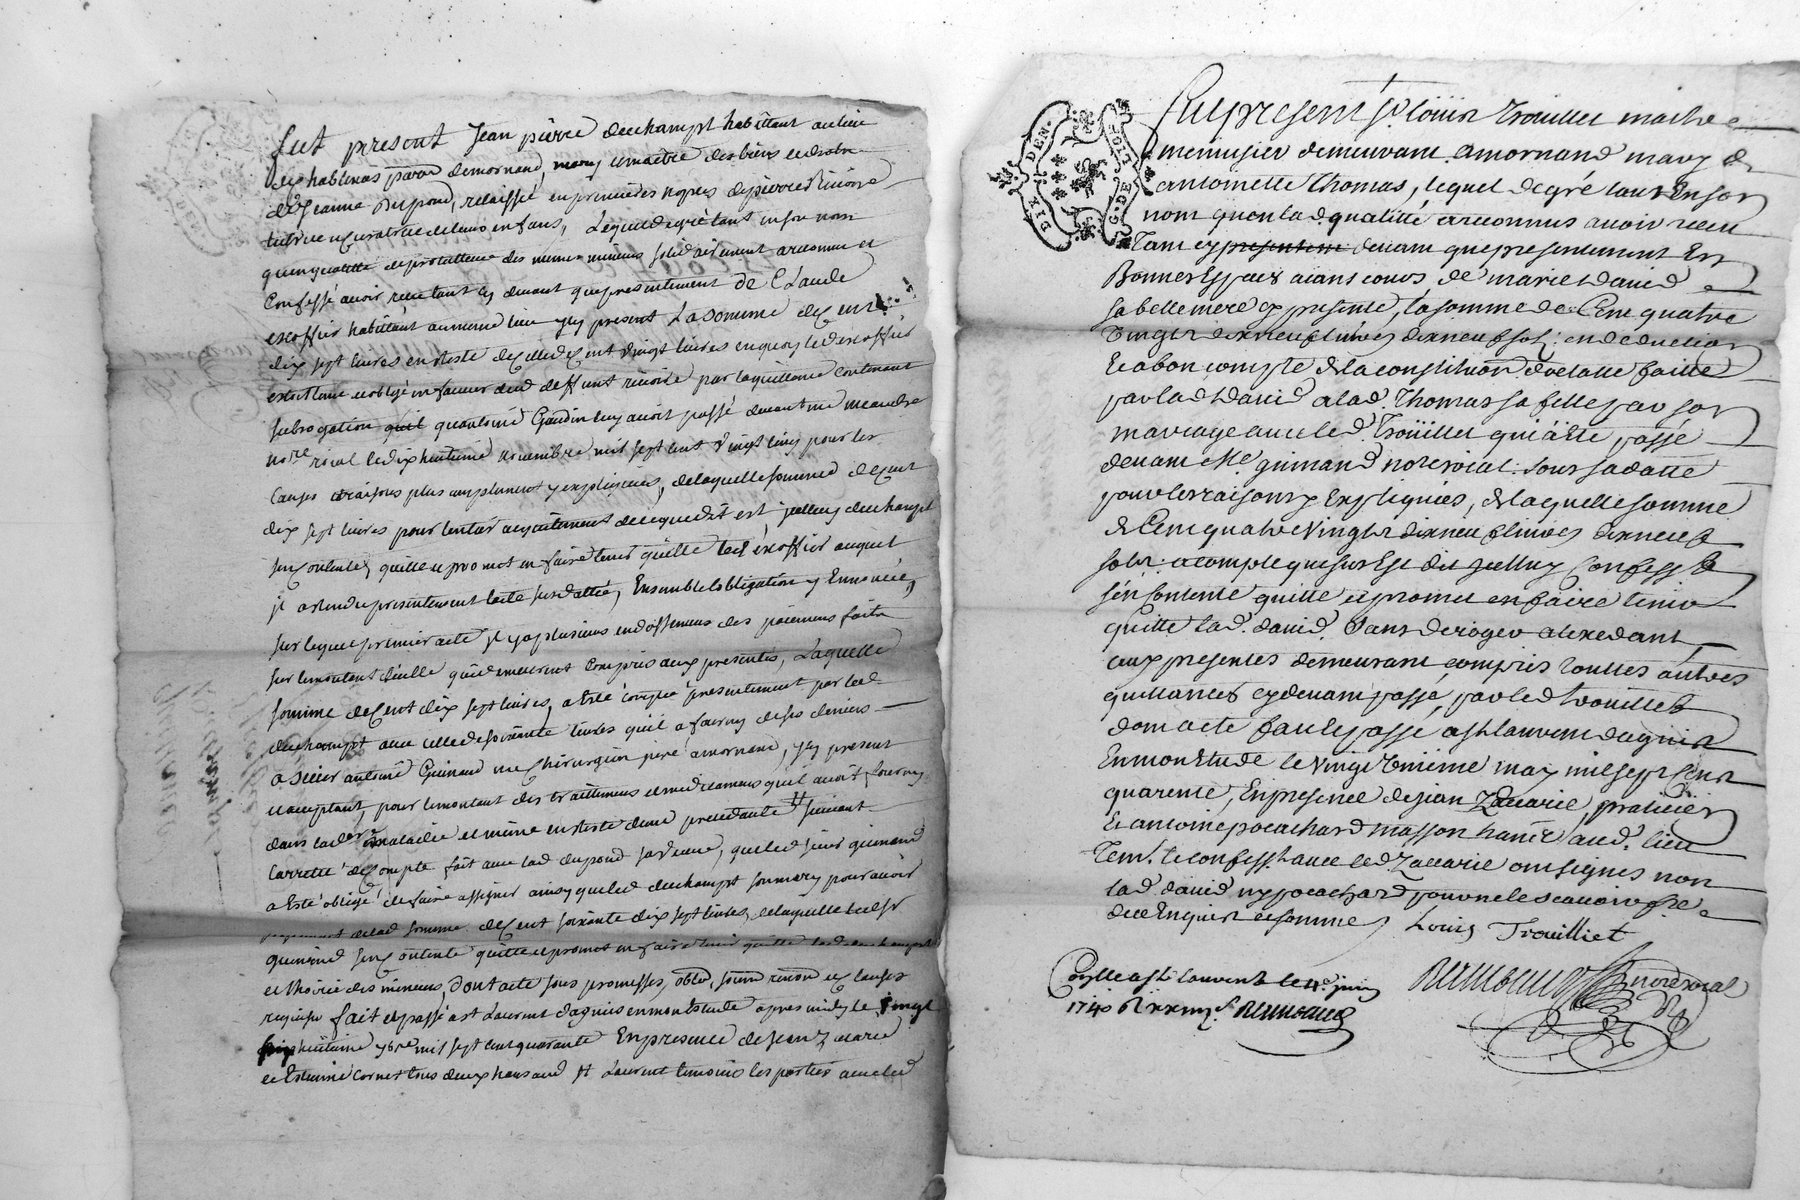 fut present Jean pierre duchampt habittant au lieu
des hablenas parre de mornand, mary et maitre des biens et droits
de Jeanne Dupond, relaissé en premieres nopces de pierre
tutrice et curatrice de leurs enfans, Lequel de gré tant en son nom
qu'en qualitté de protutteur des mesmes mineurs solidairement a reconnu et
Confessé avoir receu tant cy devant que presentement de Claude
escoffier habittant au mesme lieu y cy present La somme de Cent
dix sept livres en reste de celle de Cent vingt livres en quoy led escoffier
s'est obligé en faveur dud deffunt par la quittance contenant
subrogation qu'antoine Gaudin luy avoit passé devant me
nore roial le dix huitieme novembre mil sept cent vingt cinq pour les
Causes et raisons plus amplement y expliquées, de laquelle somme de Cent
dix sept livres pour l'entier acquittement de ce que dit est, jcelluy duchampt
s'en contente, quitte et promet en faire tenir quitte led escoffier auquel
jl a rendu presentement l'acte susdatté, Ensemble l'obligation y Ennoncée,
sur lequel premier acte jl y a plusieurs endossemens des paiemens faits
sur le montant d'icelle qui demeurent Compris aux presentes, Laquelle
somme de Cent dix sept livres, a Esté comptée presentement par led
duchampt avec celle de soixante livres qu'il a fourny de ses deniers
a Sieur antoine Guinand me Chirurgien juré a mornand, y cy present
et acceptant, pour le montant des traittemens et medicamens qu'il avoit fourny
dans lad maladie et même en reste d'une precedante suivant
l'arretté de Compte fait avec lad dupond sa veuve, que led sieur guinand
a Esté obligé de faire assigner ainsy que led duchampt son mary pour avoir
payement de lad somme de Cent soixante dix sept livres, de laquelle led sr
guinand s'en contente quitte et promet en faire tenir quitte lesd duchampt
et l'hoirie des mineurs, Dont acte sous promesses, oblon, soumn renon et clauses
requises fait et passé a st Laurent d'agnis en mon Estude apres midy le vingt
huitieme 9bre mil sept cent quarante En presence de Jean Zacarie
et Estienne Cornet tous deux hans aud st Laurent temoins les parties avec led
Fut present sr. Louis Trouillet maitre
menuisier demeurant a mornand mary d
antoinette Thomas, lequel de gré tant en son
nom qu'en lad. qualitté a reconnus avoir receu
Tant cy presentem devant que presentement En
Bonnes Espaces aiant cours, de marie David
sa belle mere cy presente, la somme de Cent quatre
Vingts dix neuf livres dix neuf sols; en deduction
Et a bon compte de la constitution dotalle faitte
par lad David a lad. Thomas sa fille par son
mariage avec led. Troüillet qui a Eté passé
devant Me guinand nore roial sous sa datte
pour les raisons y Expliquées, de laquelle somme
de Cent quatre Vingts dix neuf livres dix neuf
sols a compte que sus Est dit jcelluy Confesse
s'en Contente quitte et promet en faire tenir
quitte lad. david. Sans deroger a l'exedant,
aux presentes demeurant compris touttes autres
quittances cy devant passé, par led trouillet
dont acte fait et passé a st Laurent dagnis
En mon Etude le vingt may mil sept Cent
quarente, En presence de jean Zacarie, praticien
Et antoine pocachard masson hant aud. lieu
Tem. le confessant avec led Zacarie ont signés non
lad david ny pocachard pour ne le scavoir fre
de ce Enquis et sommés Louis Trouilliet
Conlle a st Laurent le 4e juin
1740
nore roial
DIX DEN.
G. DE LION